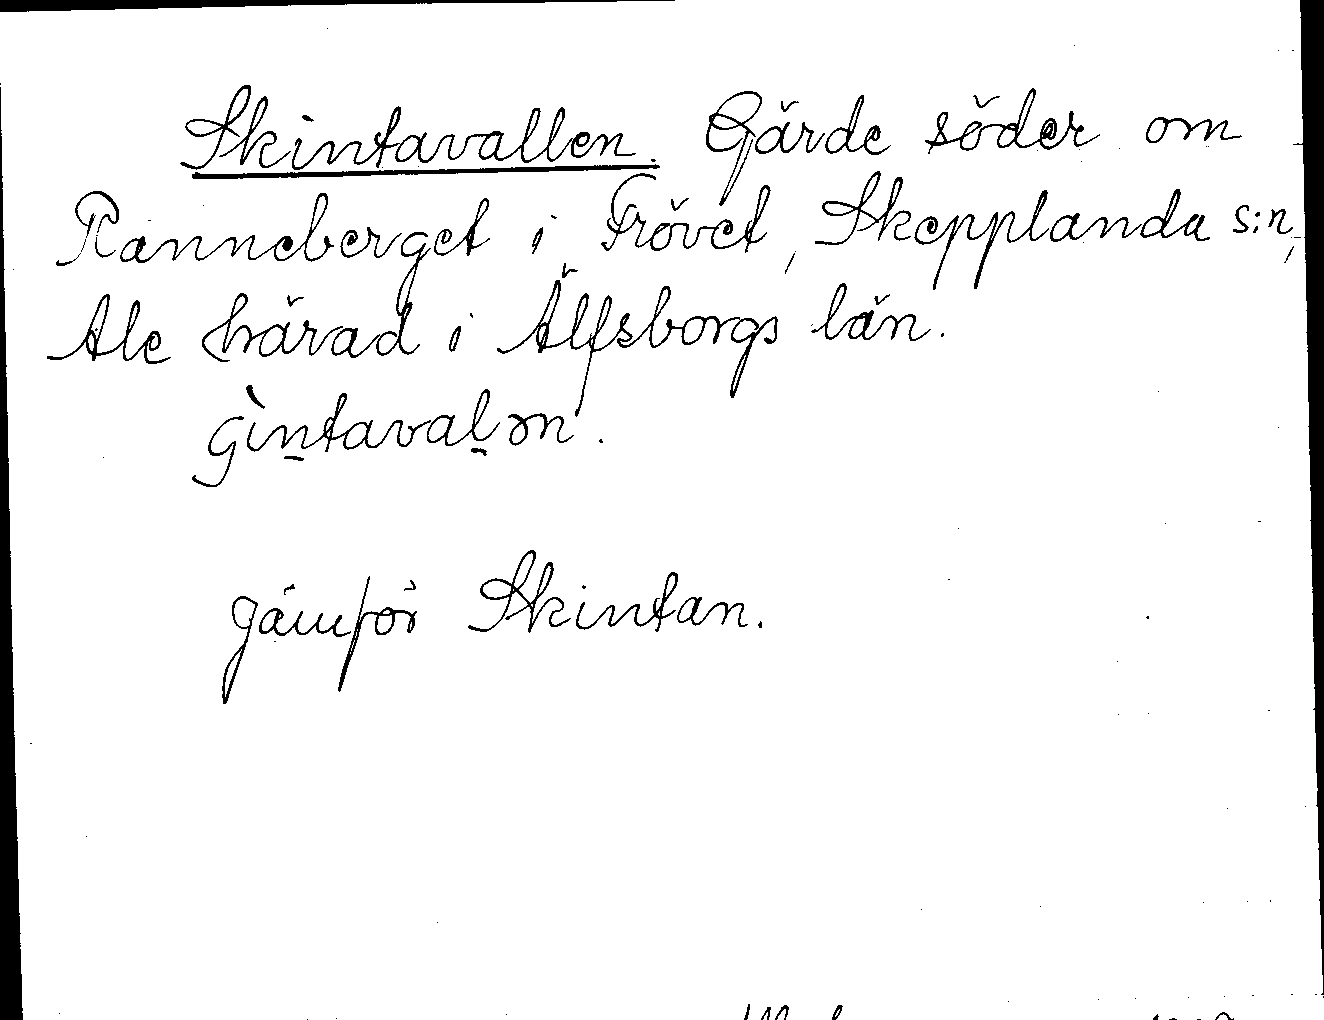 Skintavallen. Gärde söder om
Ranneberget i Frövet, Skepplanda s:n,
Ale härad i Älfsborgs län.
Jämför Skintan.